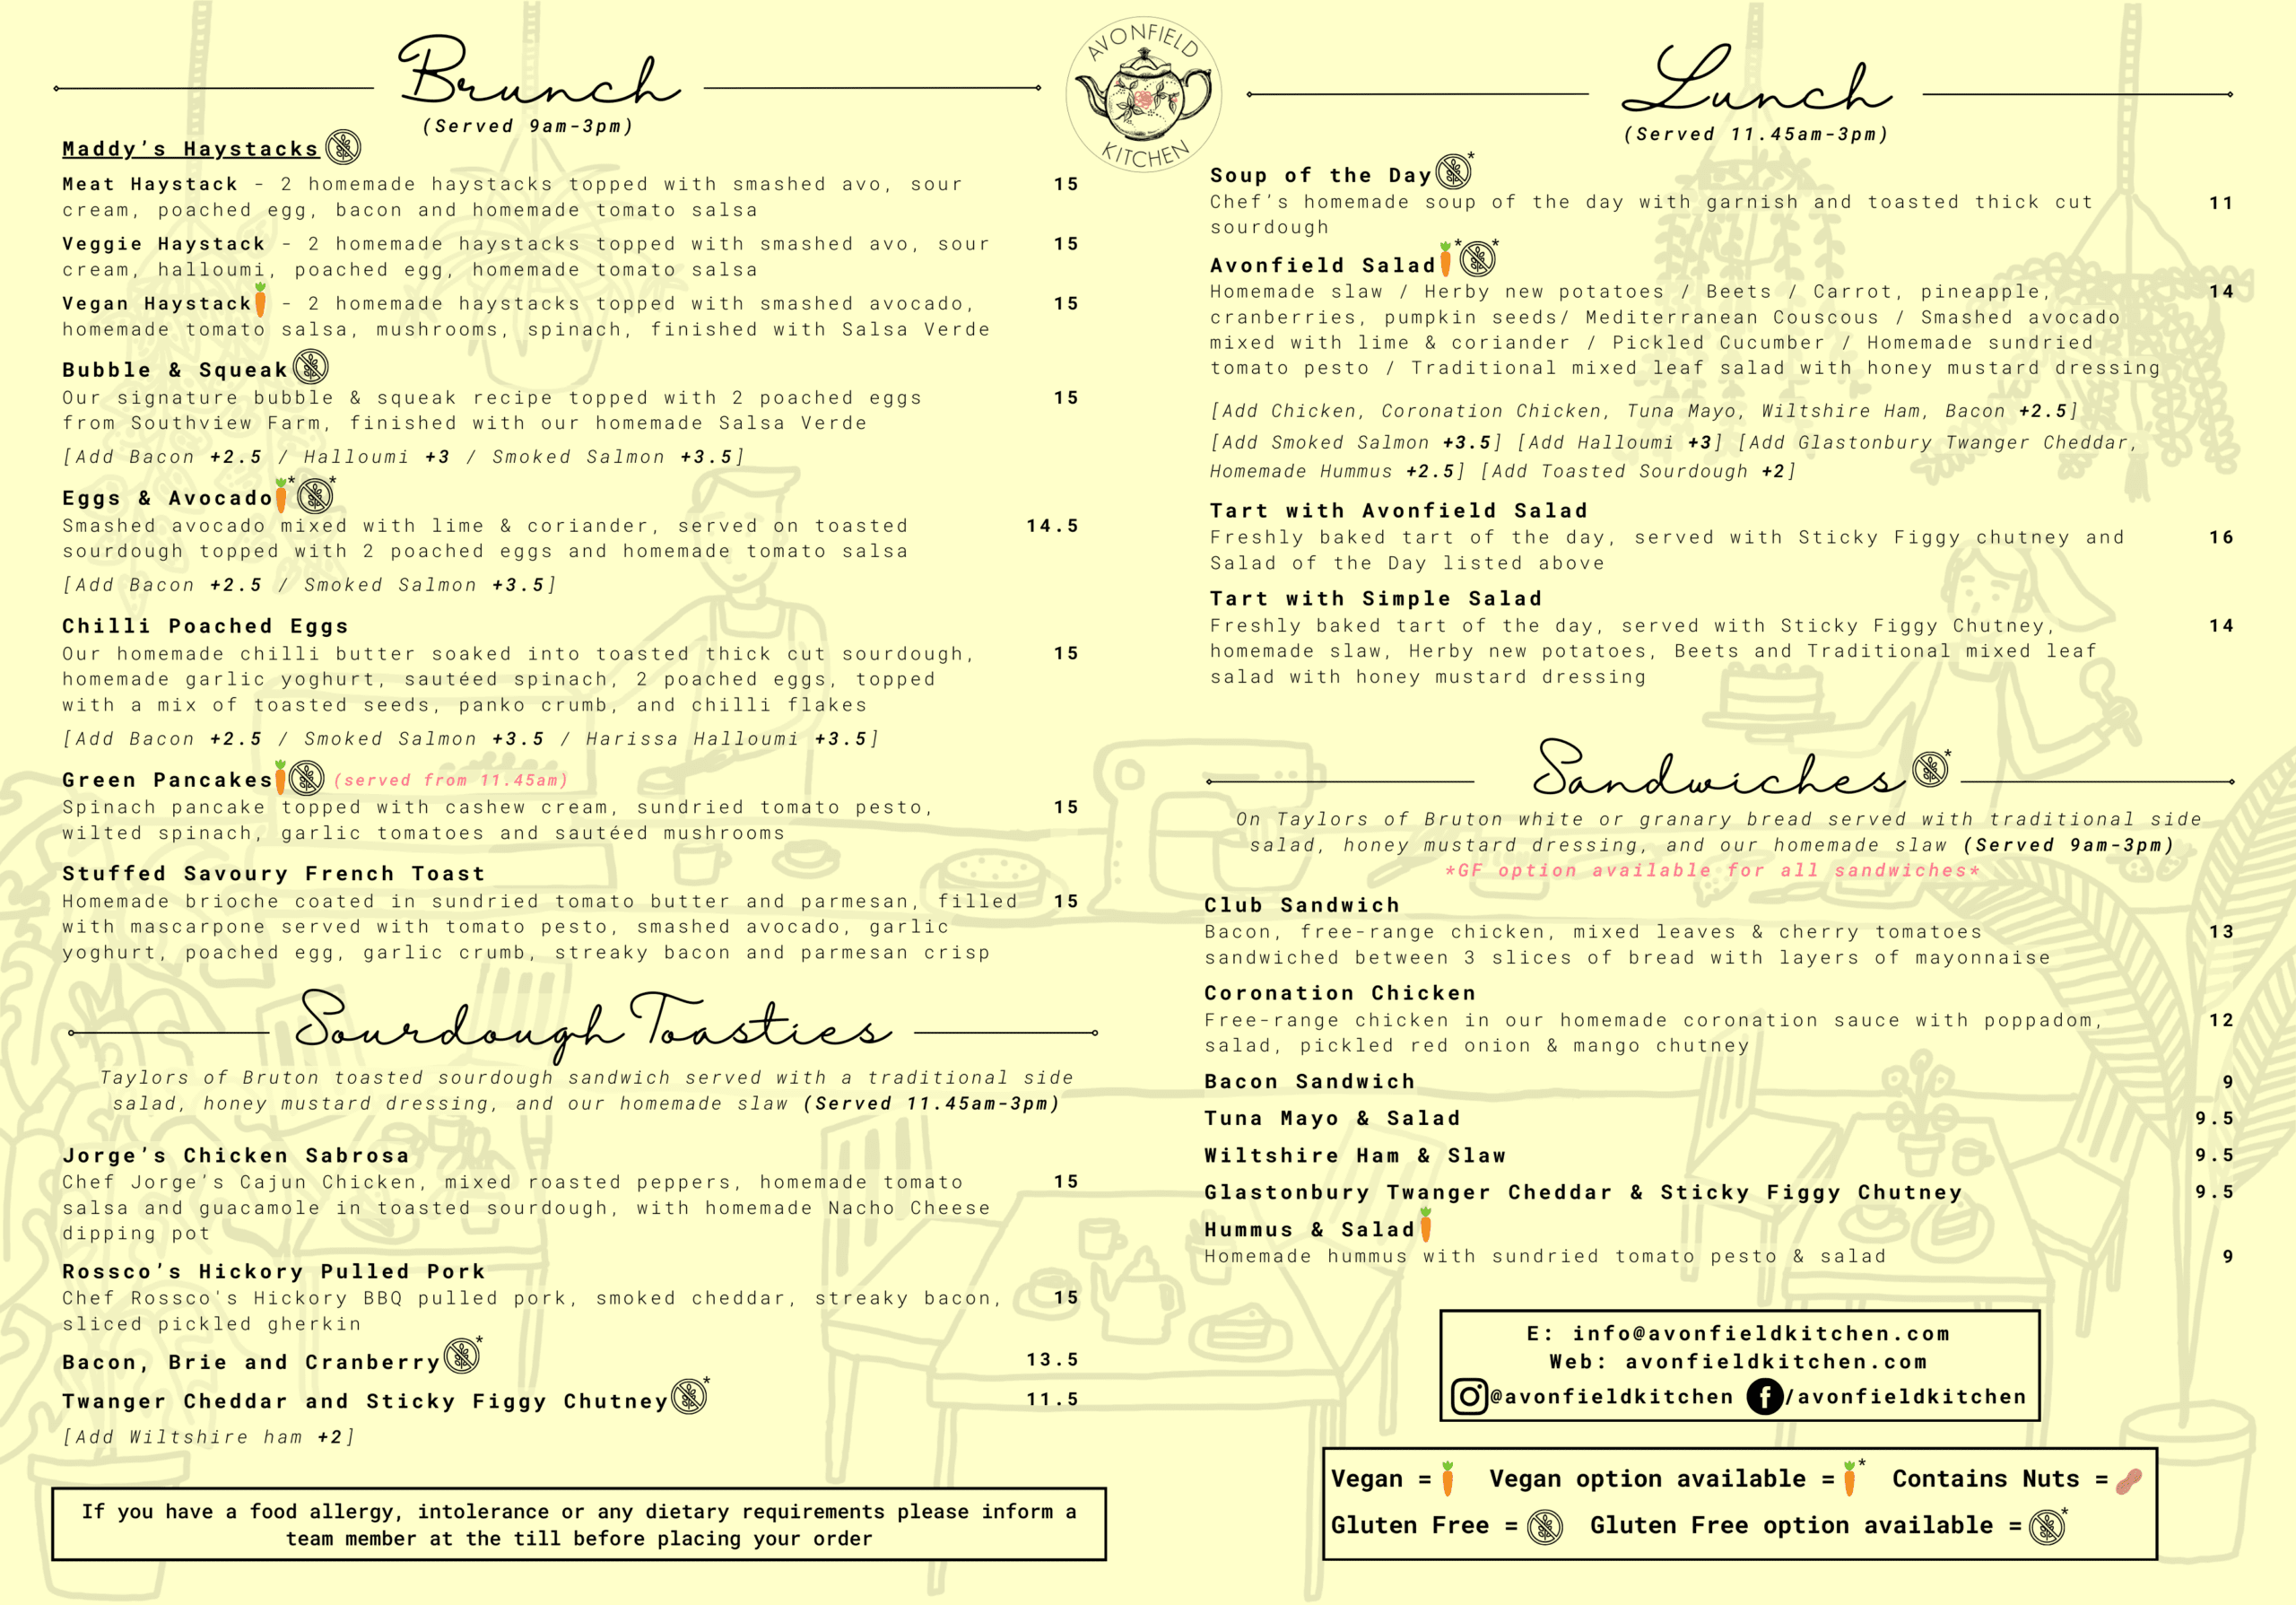 Brunch
(Served 9am-3pm)
Maddy's Haystacks
Meat Haystack - 2 homemade haystacks topped with smashed avo, sour 15
cream, poached egg, bacon and homemade tomato salsa
Veggie Haystack - 2 homemade haystacks topped with smashed avo, sour 15
cream, halloumi, poached egg, homemade tomato salsa
Vegan Haystack - 2 homemade haystacks topped with smashed avocado, 15
homemade tomato salsa, mushrooms, spinach, finished with Salsa Verde
Bubble & Squeak
Our signature bubble & squeak recipe topped with 2 poached eggs 15
from Southview Farm, finished with our homemade Salsa Verde
[Add Bacon +2.5 / Halloumi +3 / Smoked Salmon +3.5]
Eggs & Avocado* *
Smashed avocado mixed with lime & coriander, served on toasted 14.5
sourdough topped with 2 poached eggs and homemade tomato salsa
[Add Bacon +2.5 / Smoked Salmon +3.5]
Chilli Poached Eggs
Our homemade chilli butter soaked into toasted thick cut sourdough, 15
homemade garlic yoghurt, sautéed spinach, 2 poached eggs, topped
with a mix of toasted seeds, panko crumb, and chilli flakes
[Add Bacon +2.5 / Smoked Salmon +3.5 / Harissa Halloumi +3.5]
Green Pancakes (served from 11.45am)
Spinach pancake topped with cashew cream, sundried tomato pesto, 15
wilted spinach, garlic tomatoes and sautéed mushrooms
Stuffed Savoury French Toast
Homemade brioche coated in sundried tomato butter and parmesan, filled 15
with mascarpone served with tomato pesto, smashed avocado, garlic
yoghurt, poached egg, garlic crumb, streaky bacon and parmesan crisp
Sourdough Toasties
Taylors of Bruton toasted sourdough sandwich served with a traditional side
salad, honey mustard dressing, and our homemade slaw (Served 11.45am-3pm)
Jorge's Chicken Sabrosa
Chef Jorge's Cajun Chicken, mixed roasted peppers, homemade tomato 15
salsa and guacamole in toasted sourdough, with homemade Nacho Cheese
dipping pot
Rossco's Hickory Pulled Pork
Chef Rossco's Hickory BBQ pulled pork, smoked cheddar, streaky bacon, 15
sliced pickled gherkin
Bacon, Brie and Cranberry* 13.5
Twanger Cheddar and Sticky Figgy Chutney* 11.5
[Add Wiltshire ham +2]
If you have a food allergy, intolerance or any dietary requirements please inform a
team member at the till before placing your order
AVONFIELD
KITCHEN
Lunch
(Served 11.45am-3pm)
Soup of the Day*
Chef's homemade soup of the day with garnish and toasted thick cut 11
sourdough
Avonfield Salad* *
Homemade slaw / Herby new potatoes / Beets / Carrot, pineapple, 14
cranberries, pumpkin seeds/ Mediterranean Couscous / Smashed avocado
mixed with lime & coriander / Pickled Cucumber / Homemade sundried
tomato pesto / Traditional mixed leaf salad with honey mustard dressing
[Add Chicken, Coronation Chicken, Tuna Mayo, Wiltshire Ham, Bacon +2.5]
[Add Smoked Salmon +3.5] [Add Halloumi +3] [Add Glastonbury Twanger Cheddar,
Homemade Hummus +2.5] [Add Toasted Sourdough +2]
Tart with Avonfield Salad
Freshly baked tart of the day, served with Sticky Figgy chutney and 16
Salad of the Day listed above
Tart with Simple Salad
Freshly baked tart of the day, served with Sticky Figgy Chutney, 14
homemade slaw, Herby new potatoes, Beets and Traditional mixed leaf
salad with honey mustard dressing
Sandwiches*
On Taylors of Bruton white or granary bread served with traditional side
salad, honey mustard dressing, and our homemade slaw (Served 9am-3pm)
*GF option available for all sandwiches*
Club Sandwich
Bacon, free-range chicken, mixed leaves & cherry tomatoes 13
sandwiched between 3 slices of bread with layers of mayonnaise
Coronation Chicken
Free-range chicken in our homemade coronation sauce with poppadom, 12
salad, pickled red onion & mango chutney
Bacon Sandwich 9
Tuna Mayo & Salad 9.5
Wiltshire Ham & Slaw 9.5
Glastonbury Twanger Cheddar & Sticky Figgy Chutney 9.5
Hummus & Salad
Homemade hummus with sundried tomato pesto & salad 9
E: info@avonfieldkitchen.com
Web: avonfieldkitchen.com
@avonfieldkitchen /avonfieldkitchen
Vegan = Vegan option available = * Contains Nuts =
Gluten Free = Gluten Free option available = *